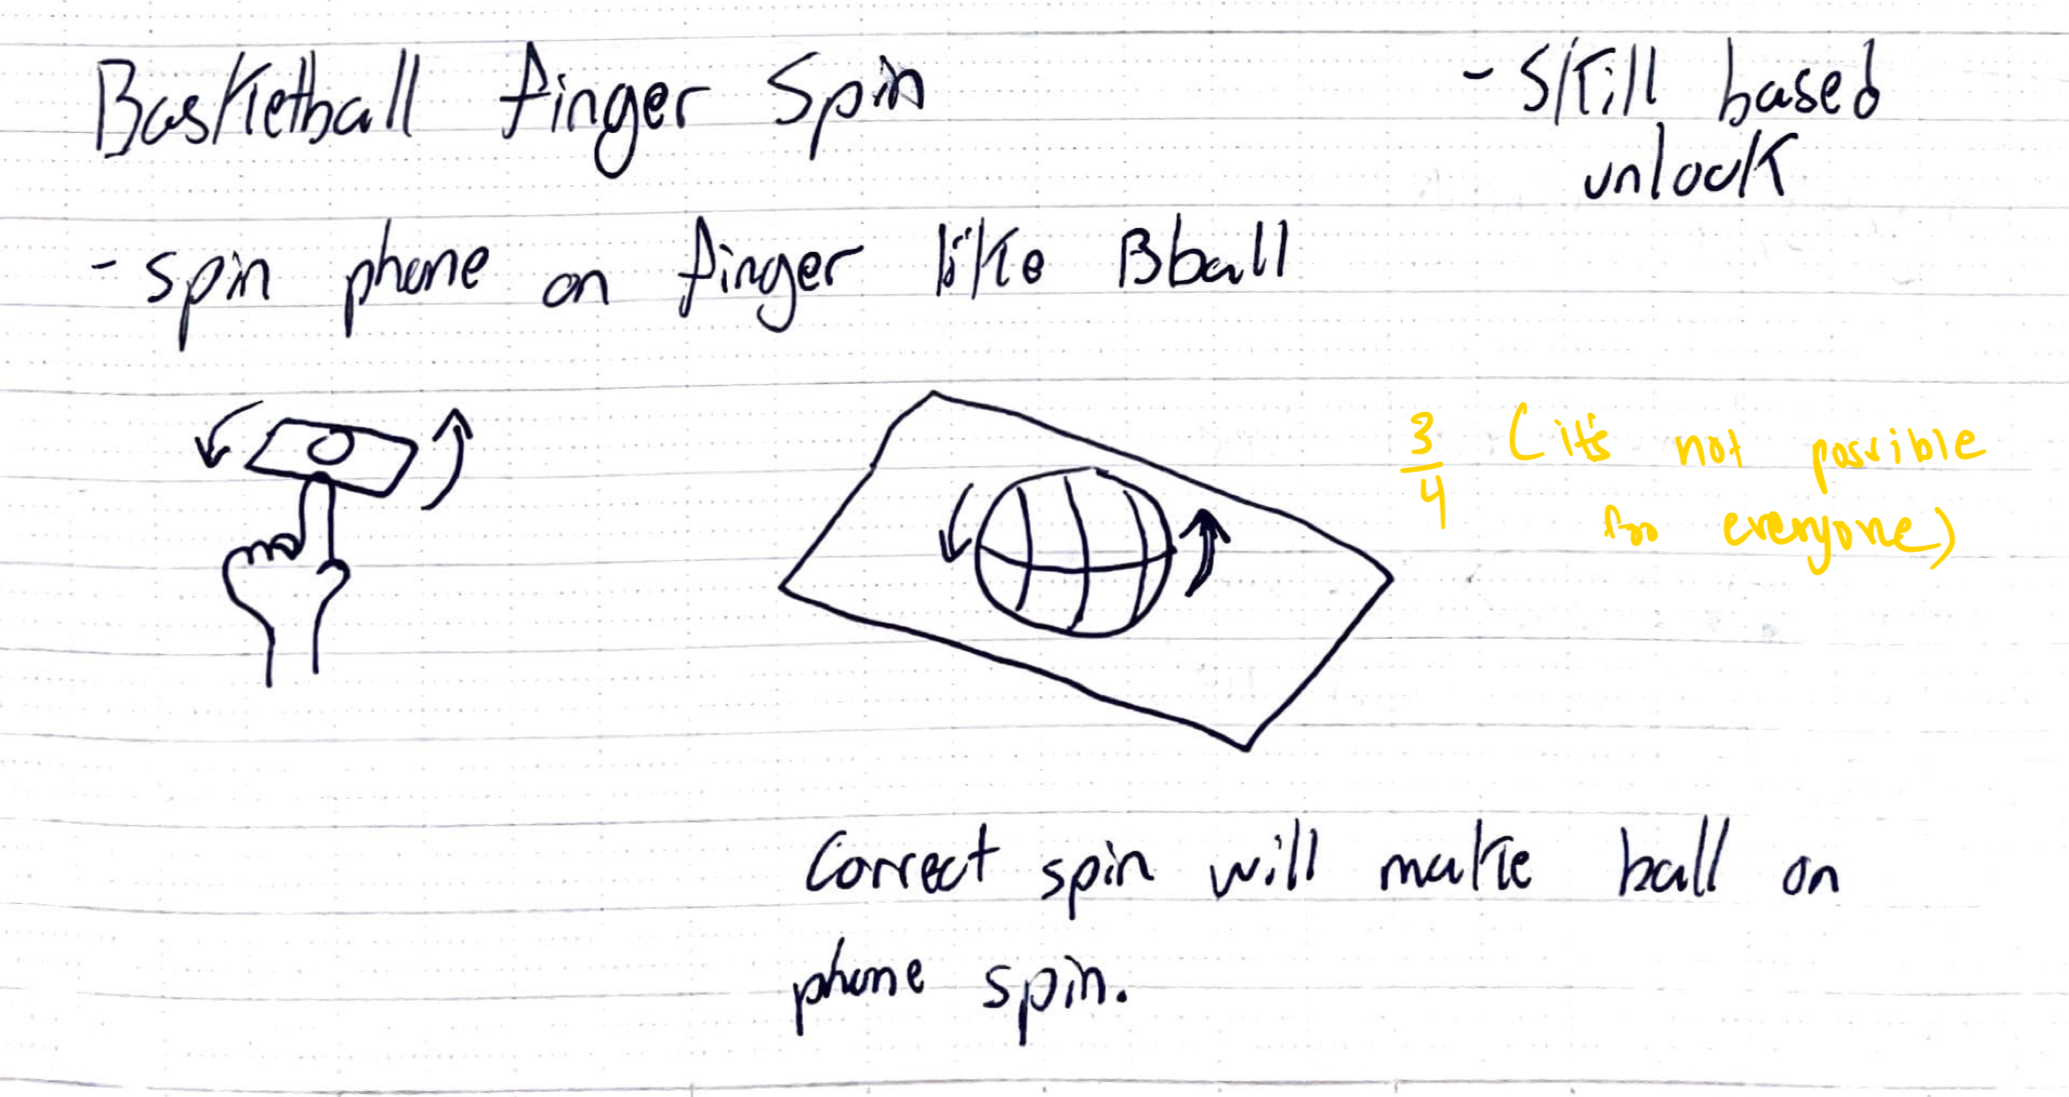 Basketball finger Spin
- Skill based
unlock
- spin phone on finger like Bball
3/4 (it's not possible
for everyone)
Correct spin will make ball on
phone spin.